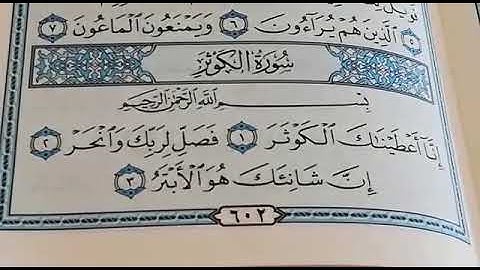 ٱلَّذِينَ هُمْ يُرَآءُونَ ٦ وَيَمْنَعُونَ ٱلْمَاعُونَ ٧
سُورَةُ الْكَوْثَرِ
بِسْمِ ٱللَّهِ ٱلرَّحْمَٰنِ ٱلرَّحِيمِ
إِنَّآ أَعْطَيْنَٰكَ ٱلْكَوْثَرَ ١ فَصَلِّ لِرَبِّكَ وَٱنْحَرْ ٢
إِنَّ شَانِئَكَ هُوَ ٱلْأَبْتَرُ ٣
٦٠٢